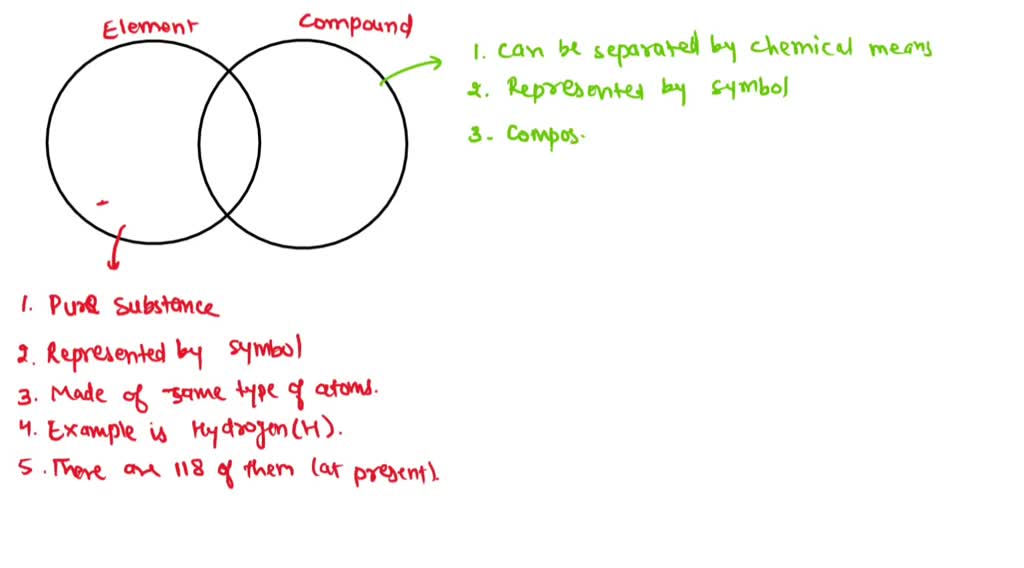 Element
Compound
1. Can be separated by chemical means
2. Represented by symbol
3- Compos.
1. Pure Substance
2. Represented by symbol
3. Made of same type of atoms.
4. Example is Hydrogen (H).
5. There are 118 of them (at present).